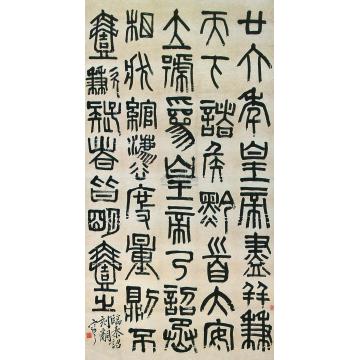 廿六年皇帝盡并兼
天下諸侯黔首大安
立號為皇帝乃詔丞
相狀綰灋度量則不
壹歉疑者皆明壹之
臨秦詔